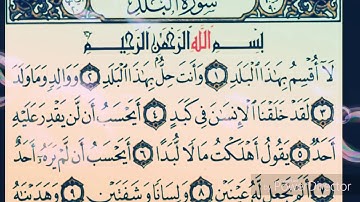 سُورَةُ البَلَدِ
بِسْمِ اللَّهِ الرَّحْمَٰنِ الرَّحِيمِ
لَا أُقْسِمُ بِهَٰذَا الْبَلَدِ ١ وَأَنتَ حِلٌّ بِهَٰذَا الْبَلَدِ ٢ وَوَالِدٍ وَمَا وَلَدَ
٣ لَقَدْ خَلَقْنَا الْإِنسَٰنَ فِي كَبَدٍ ٤ أَيَحْسَبُ أَن لَّن يَقْدِرَ عَلَيْهِ
أَحَدٌ ٥ يَقُولُ أَهْلَكْتُ مَالًا لُّبَدًا ٦ أَيَحْسَبُ أَن لَّمْ يَرَهُۥٓ أَحَدٌ
٧ أَلَمْ نَجْعَل لَّهُۥ عَيْنَيْنِ ٨ وَلِسَانًا وَشَفَتَيْنِ ٩ وَهَدَيْنَٰهُ
PowerDirector